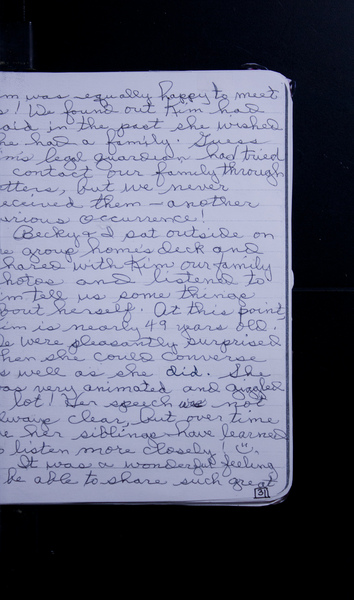 m was equally happy to meet
s! We found out Kim had
aid in the past she wished
he had a family. Guess
im's legal guardian had tried
contact our family through
etters, but we never
eceived them - another
urious occurrence!
Becky & I sat outside on
e group home's deck and
hared with Kim our family
hotos and listened to
im tell us some things
bout herself. At this point,
im is nearly 49 years old.
e were pleasantly surprised
hen she could converse
s well as she did. She
as very animated and giggled
lot! Her speech was not
lways clear, but over time
e her siblings have learned
o listen more closely! ☺.
It was a wonderful feeling
be able to share such great
3